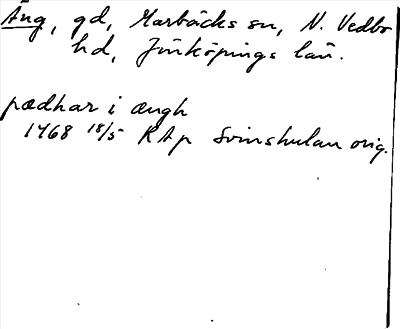 Äng, gd, Marbäcks sn, N. Vedbo
hd, Jönköpings län.
pædhar i ængh
1468 18/5 RAp Svinshulan orig.